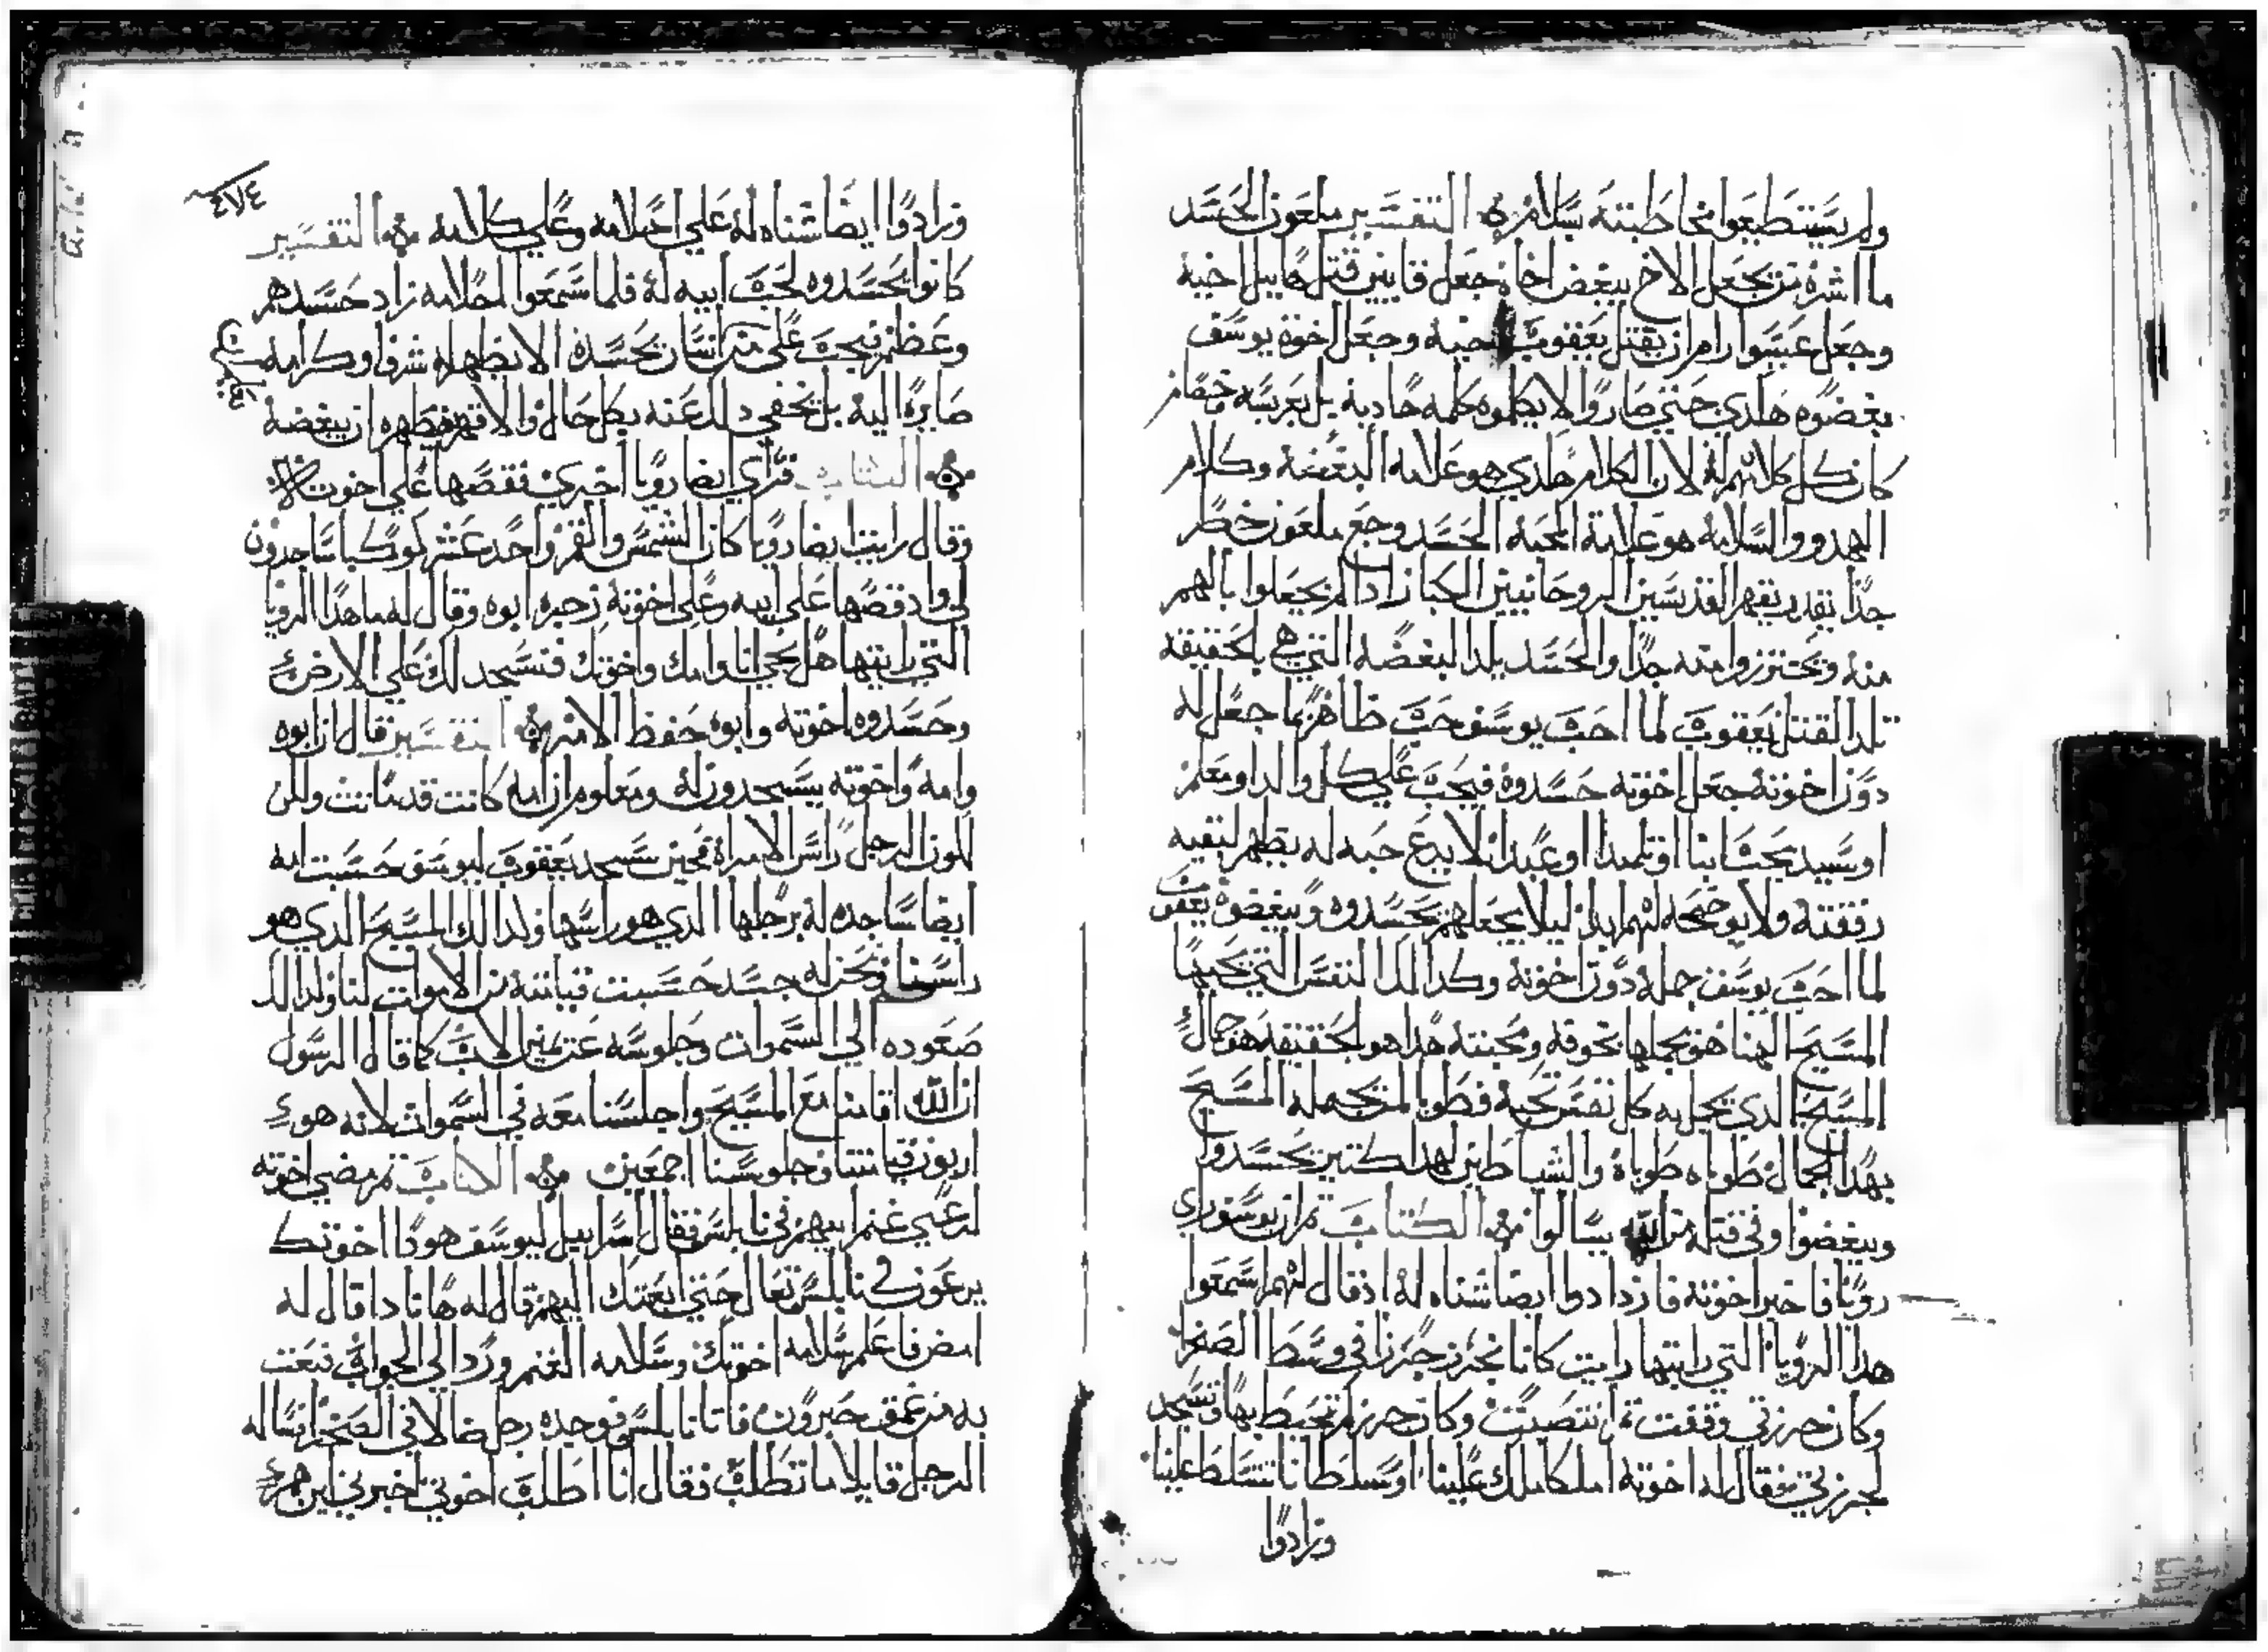 ولم يستطيعوا مخاطبته بسلامه التفسير ملعون الحسد
ما اشره من يجعل الاخ يبغض اخاه جعل قايين قتل هابيل اخيه
وجعل عيسوا رام ان يقتل يعقوب اخيه وجعل اخوة يوسف
بغضوه هكدي حتي صاروا لا يكلموه كلمه هاديه بل بعربسه وخصام
كان كل كلامهم له لان الكلام هكدي هو علامه البغضة وكلام
الهدوو والسلامه هو علامة المحبه الحسد وجع ملعون خطر
جدا يقدر يقهر القديسين الروحانيين الكبار ادا لم يجعلوا بالهم
منه ويحترزوا منه جدا والحسد يلد البغضه التي هي بالحقيقه
تلد القتل يعقوب لما احب يوسف حب ظاهر بما جعل له
دون اخوته جعل اخوته حسدوه فيجب علي كل والد او معلم
او سيد يحب ابنا او تلميدا او عبدا ان لا يدع حبه له يظهر لبقيه
رفقته ولا يوضحه لهم ابدا ليلا يجعلهم يحسدوه ويبغضوه يعقوب
لما احب يوسف جمله دون اخوته وكدالك النفس التي يحبها
المسيح الهنا هو يجملها بخوفه ومحبته هدا هو بالحقيقه هو جمال
المسيح الدي يجمل به كل نفس تحبه فطوبا لمن يجمله المسيح
بهدا الجمال طوباه طوباه والشياطين لهدا كتير يحسدوا
ويبغضوا وفي قتله من الله يسالوا الكتاب تم ان يوسف راي
رويا فاخبر اخوته فازدادوا ايضا شناه له اد قال لهم اسمعوا
هدا الرويا التي رايتها رايت كانا نحزم حزم في وسط الصحرا
وكان حزمتي وقفت تم انتصبت وكان حزمكم تحيط بها وتسجد
لحزمتي فقال له اخوته املكا تملك علينا او سلطانا تتسلط علينا
وزادوا
٤٧٤
وزادوا ايضا شناه له علي احلامه وعلي كلامه التفسير
كانوا يحسدوه لحب ابيه له فلما سمعوا احلامه زاد حسدهم
وعظم فيجب علي من انسان يحسده الا يظهر له شرف او كرامه
صايره اليه بل يخفي دلك عنه بكل حال والا فهو يضطره ان يبغضه
الكتاب فراي ايضا رويا اخري فقصها علي اخوته
وقال رايت ايضا رويا كان الشمس والقمر واحد عشر كوكبا ساجدون
لي واد قصها علي ابيه وعلي اخوته زجره ابوه وقال له ما هدا الرويا
التي رايتها هل نجي انا وامك واخوتك فنسجد لك علي الارض
وحسدوه اخوته وابوه حفظ الامر التفسير قال ان ابوه
وامه واخوته يسجدون له ومعلوم ان امه كانت قد ماتت ولكن
لكون الرجل راس الامراة فحين سجد يعقوب ليوسف حسبت امه
ايضا ساجده له برجلها الدي هو راسها ولدالك المسيح الدي هو
راسنا ونحن له جسد حسبت قيامته من الاموات لنا ولدالك
صعوده الي السموات وجلوسه عن يمين الاب كما قال الرسول
ان الله اقامنا مع المسيح واجلسنا معه في السموات لانه هو
اربون قيامتنا وجلوسنا اجمعين الكتاب تم مضي اخوته
لرعي غنم ابيهم في نابلس فقال اسراييل ليوسف هودا اخوتك
يرعون في نابلس تعال حتي ابعتك اليهم قال له هانادا قال له
امض فاعلم سلامه اخوتك وسلامه الغنم ورد الي الجواب فبعت
به من غمق حبرون فاتا نابلس فوجده رجل ضالا في الصحرا فساله
الرجل قايلا ما تطلب فقال انا اطلب اخوتي اخبرني اين هم